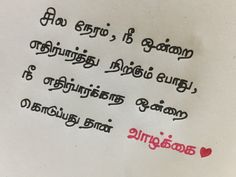 சில நேரம், நீ ஒன்றை
எதிர்பார்த்து நிற்கும் போது,
நீ எதிர்பார்க்காத ஒன்றை
கொடுப்பது தான் வாழ்க்கை